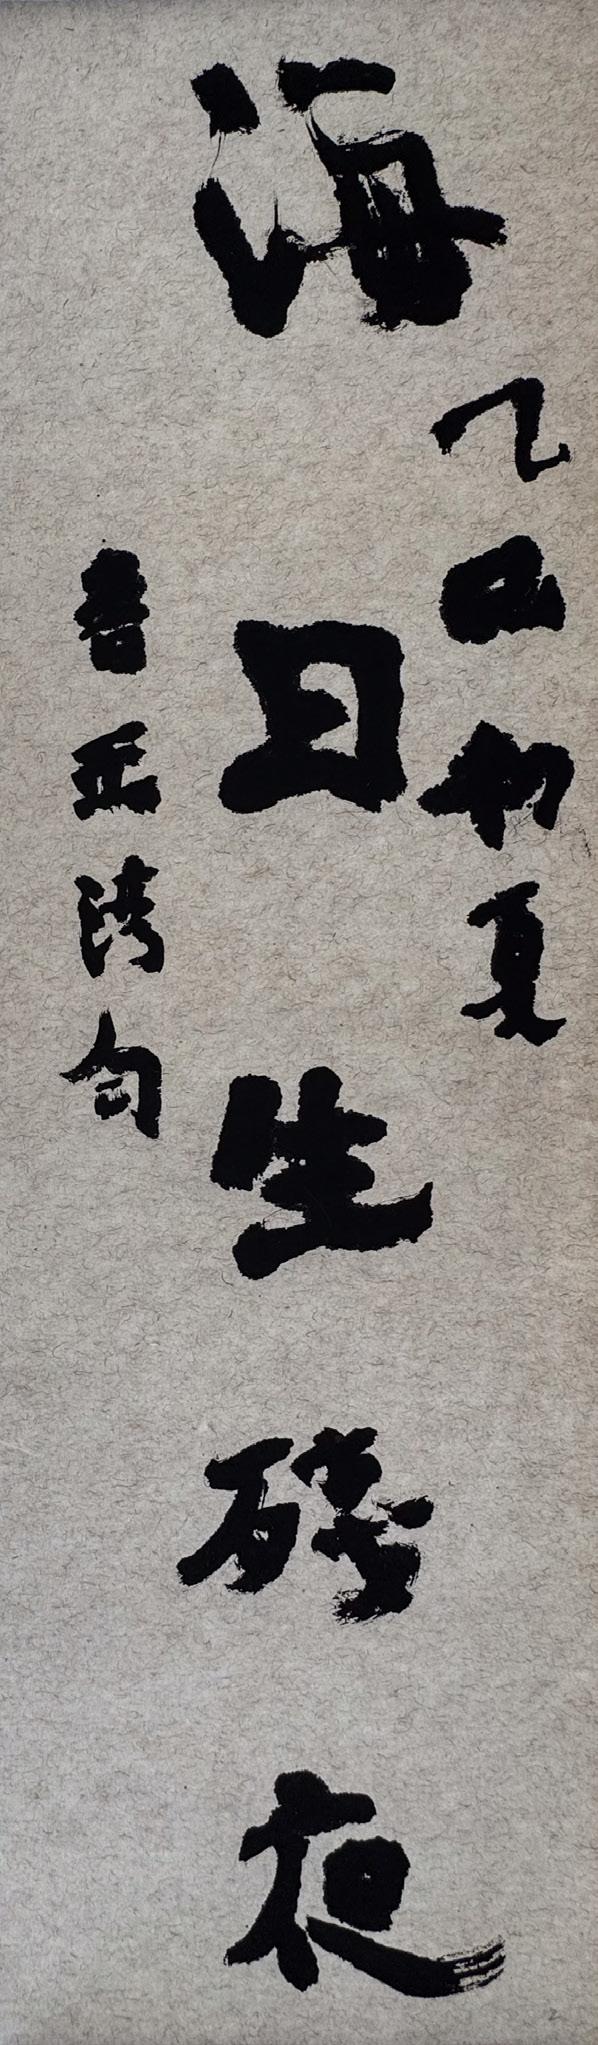 乙巳初夏
海日生残夜
書王湾句